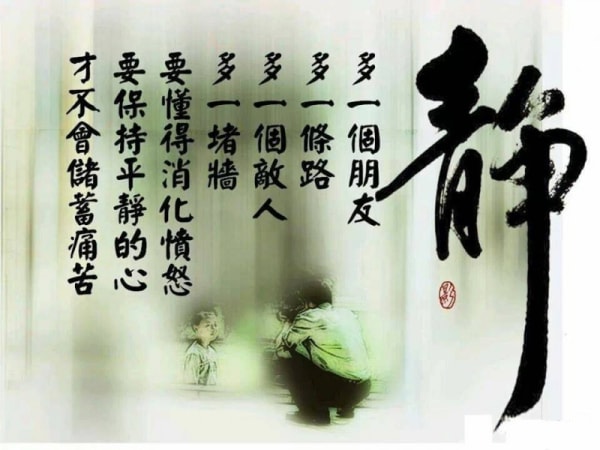 靜
多一個朋友
多一條路
多一個敵人
多一堵牆
要懂得消化憤怒
要保持平靜的心
才不會儲蓄痛苦